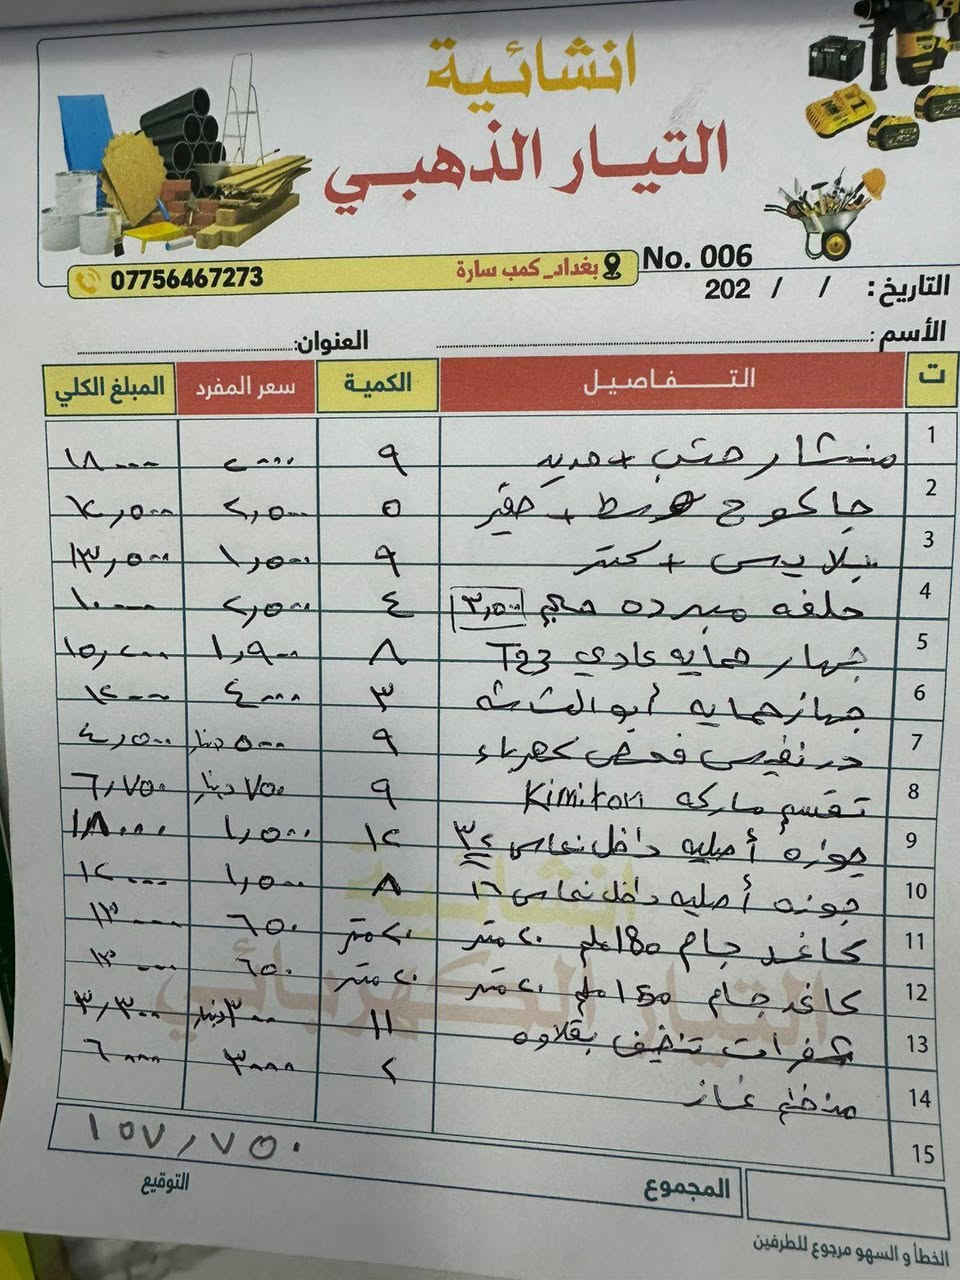 انشائية
التيار الذهبي
بغداد_كمب سارة
07756467273
No. 006
التاريخ : / / 202
الأسم : العنوان:
ت التفاصيل الكمية سعر المفرد المبلغ الكلي
1 منشار خشب + حديد ٩ ٢٠٠٠ ١٨٠٠٠
2 جاكوج وسط + صغير ٥ ٢,٥٠٠ ١٢,٥٠٠
3 بلايس + كتر ٩ ١,٥٠٠ ١٣,٥٠٠
4 حلقه مبرده حجم ٣,٥٠٠ ٤ ٢,٥٠٠ ١٠٠٠٠
5 جهاز حمايه عادي T23 ٨ ١,٩٠٠ ١٥,٢٠٠
6 جهاز حمايه أبو الشاشه ٣ ٤٠٠٠ ١٢٠٠٠
7 درنفيس فحص كهرباء ٩ ٥٠٠ دينار ٤,٥٠٠
8 تقسيم ماركه Kimiton ٩ ٧٥٠ دينار ٦,٧٥٠
9 جوزه أصليه داخل نحاس ٣٢ ١٢ ١,٥٠٠ ١٨,٠٠٠
10 جوزه أصليه داخل نحاس ١٦ ٨ ١,٥٠٠ ١٢٠٠٠
11 كاغد جام 180 ملم ٢٠ متر ٢٠ متر ٦٥٠ ١٣٠٠٠
12 كاغد جام 150 ملم ٢٠ متر ٢٠ متر ٦٥٠ ١٣٠٠٠
13 شفرات تنظيف بقلاوه ١١ ٣٠٠ دينار ٣,٣٠٠
14 منظم غاز ٢ ٣٠٠٠ ٦٠٠٠
15
١٥٧,٧٥٠
المجموع
التوقيع
الخطأ و السهو مرجوع للطرفين
انشائية
التيار الكهربائي